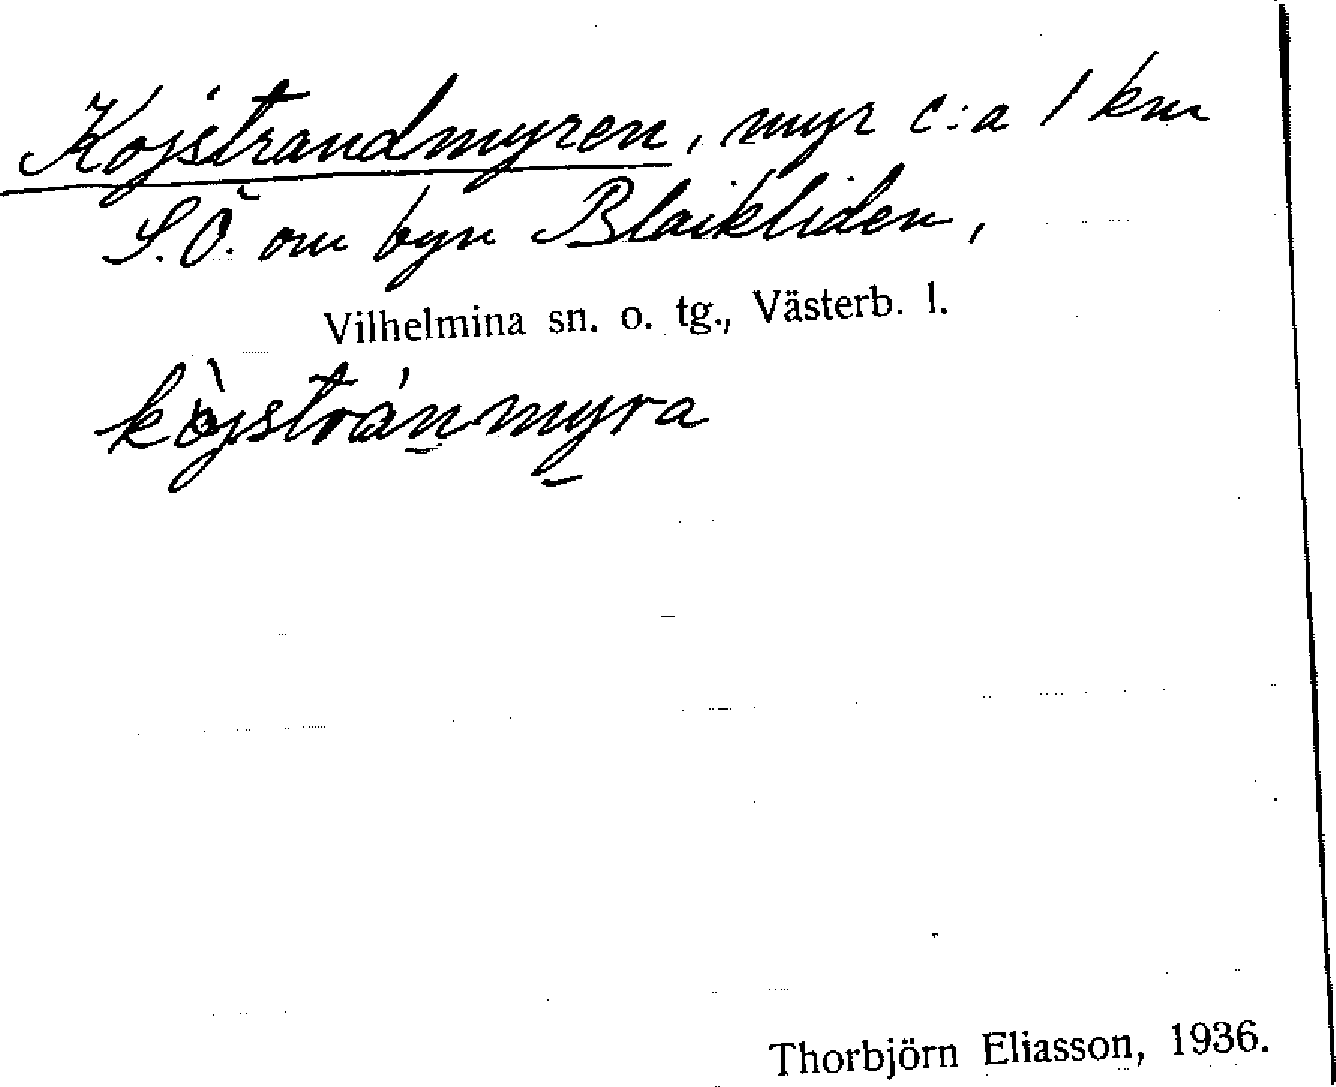 Kojstrandmyren, myr c:a 1 km
S.Ö. om byn Blaikliden,
Vilhelmina sn. o. tg., Västerb. l.
kòjstránmyra
Thorbjörn Eliasson, 1936.